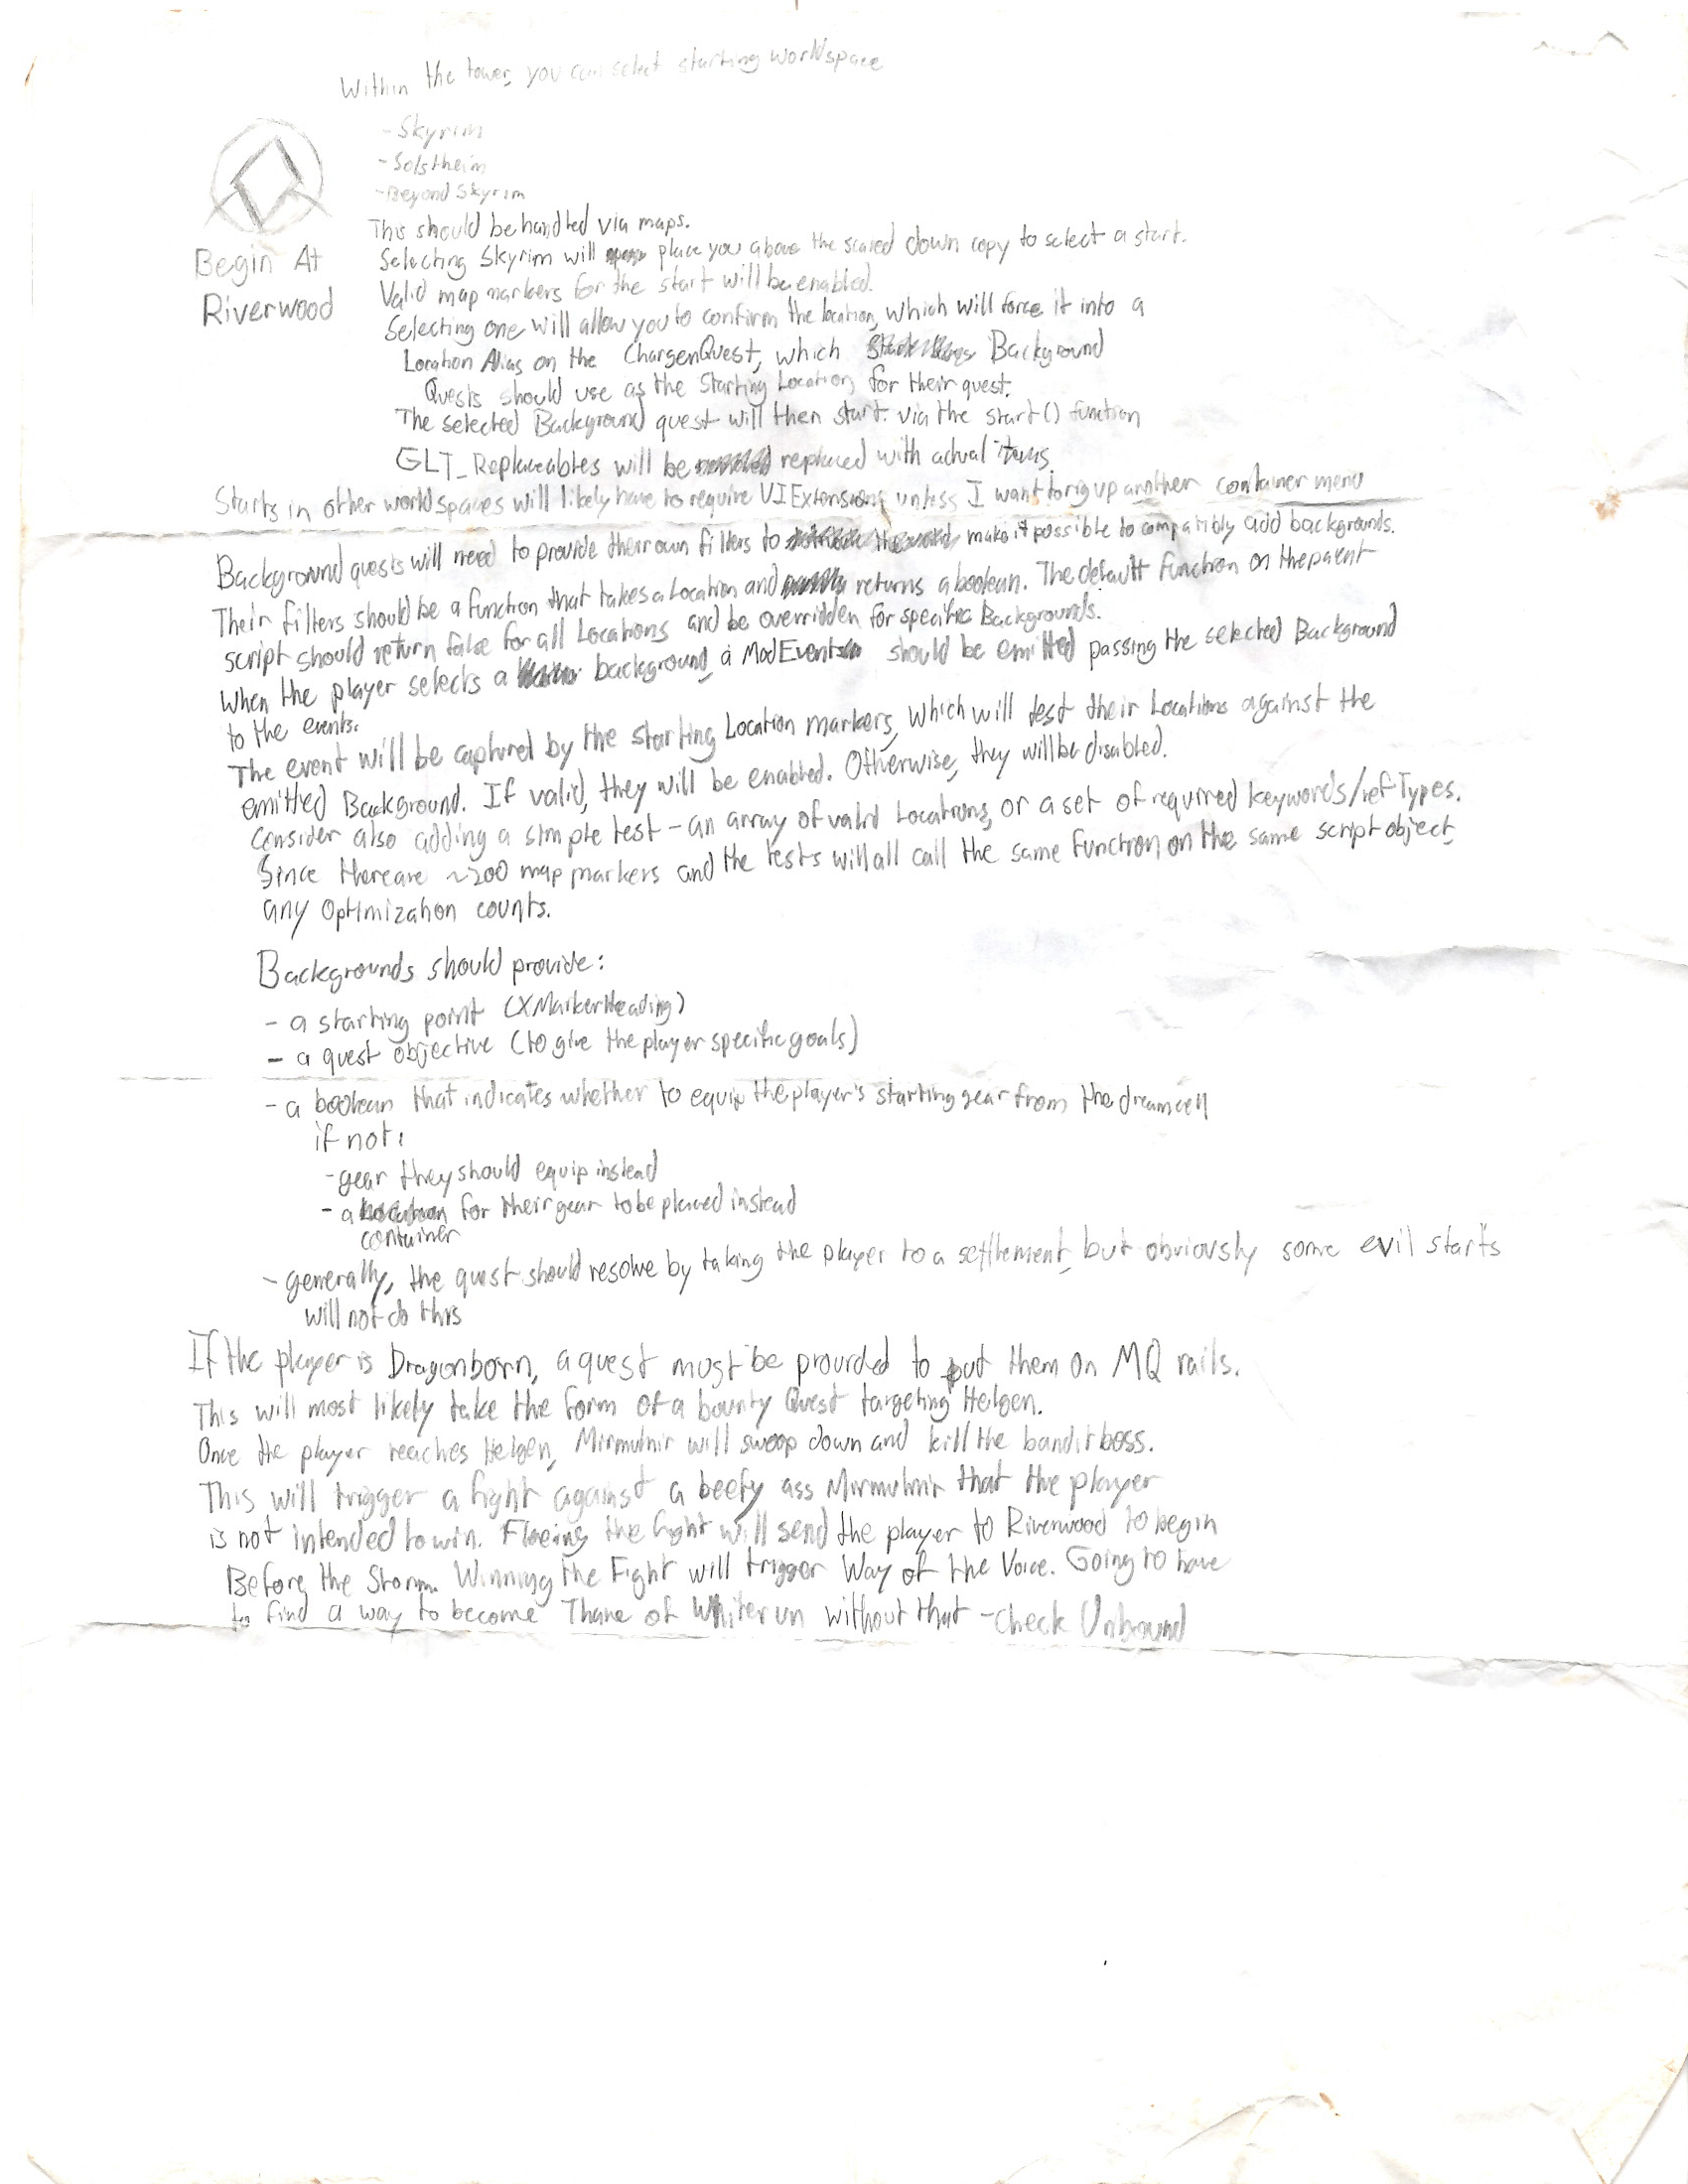 Within the tower, you can select starting worldspace
- Skyrim
- Solstheim
- Beyond Skyrim
Begin At
Riverwood
This should be handled via maps.
Selecting Skyrim will place you above the scaled down copy to select a start.
Valid map markers for the start will be enabled.
Selecting one will allow you to confirm the location, which will force it into a
Location Alias on the ChargenQuest, which Background
Quests should use as the Starting Location for their quest.
The selected Background quest will then start. via the start() function
GLT_Replaceables will be replaced with actual items.
Starts in other worldspaces will likely have to require UIExtensions unless I want to rig up another container menu
Background quests will need to provide their own filters to make it possible to compatibly add backgrounds.
Their filters should be a function that takes a Location and returns a boolean. The default function on the parent
script should return false for all Locations and be overridden for specific Backgrounds.
When the player selects a background, a ModEvent should be emitted passing the selected Background
to the events.
The event will be captured by the starting Location markers, which will test their Locations against the
emitted Background. If valid, they will be enabled. Otherwise, they will be disabled.
Consider also adding a simple test - an array of valid Locations, or a set of required keywords/refTypes.
Since there are ~200 map markers and the tests will all call the same function on the same script object,
any optimization counts.
Backgrounds should provide:
- a starting point (XMarkerHeading)
- a quest objective (to give the player specific goals)
- a boolean that indicates whether to equip the player's starting gear from the dreamcell
if not:
- gear they should equip instead
- a for their gear to be placed instead
container
- generally, the quest should resolve by taking the player to a settlement, but obviously some evil starts
will not do this
If the player is Dragonborn, a quest must be provided to put them on MQ rails.
This will most likely take the form of a bounty Quest targeting Helgen.
Once the player reaches Helgen, Mirmulnir will swoop down and kill the bandit boss.
This will trigger a fight against a beefy ass Mirmulnir that the player
is not intended to win. Fleeing the fight will send the player to Riverwood to begin
Before the Storm. Winning the Fight will trigger Way of the Voice. Going to have
to find a way to become Thane of Whiterun without that - check Unbound